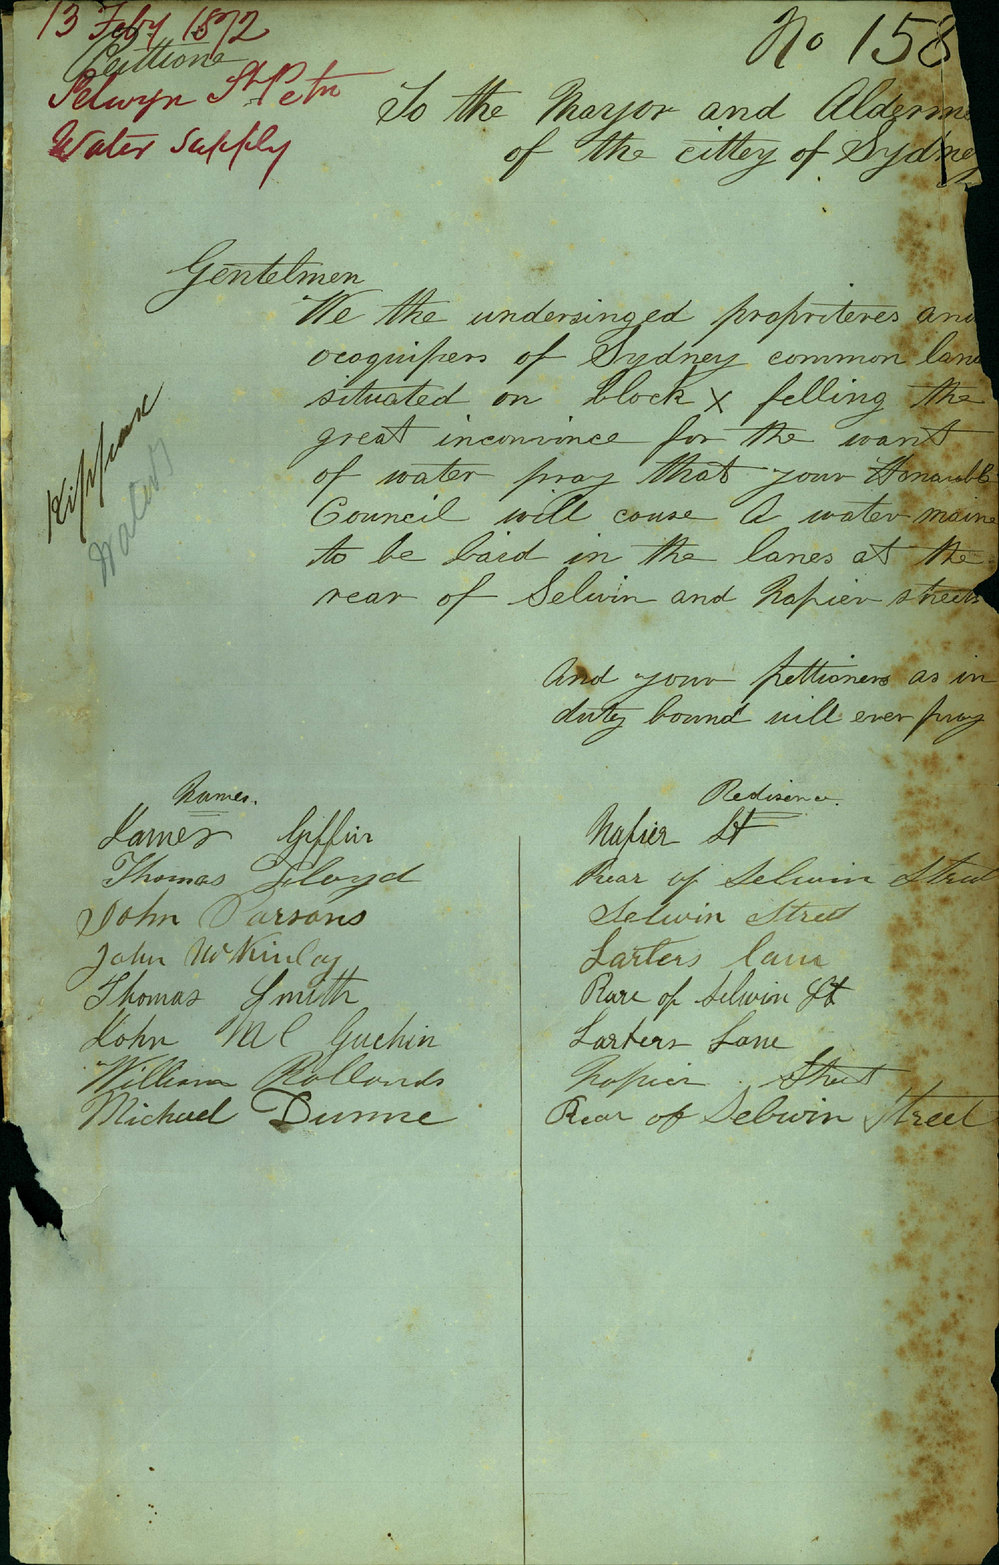 13 Feby 1872
Pettions
Selwyn St Petn
Water Supply
No 158
To the Mayor and Alderme
of the cittey of Sydney
Gentelmen
We the undersinged propriteres and
ocoquipers of Sydney common land
situated on block X felling the
great inconvince for the want
of water pray that your Honauble
Council will couse A water maine
to be laid in the lanes at the
rear of Selwin and Napier streets
Kippax
Water
And your pettioners as in
duty bound will ever pray
Names. Redisence.
James Giffin Napier St
Thomas Floyd Rear of Selwin Street
John Parsons Selwin Street
John McKinlay Larters lane
Thomas Smith Rare of Selwin St
John Mc Guchin Larters Lane
William Rollands Napier Street
Michael Dunne Rear of Selwin Street